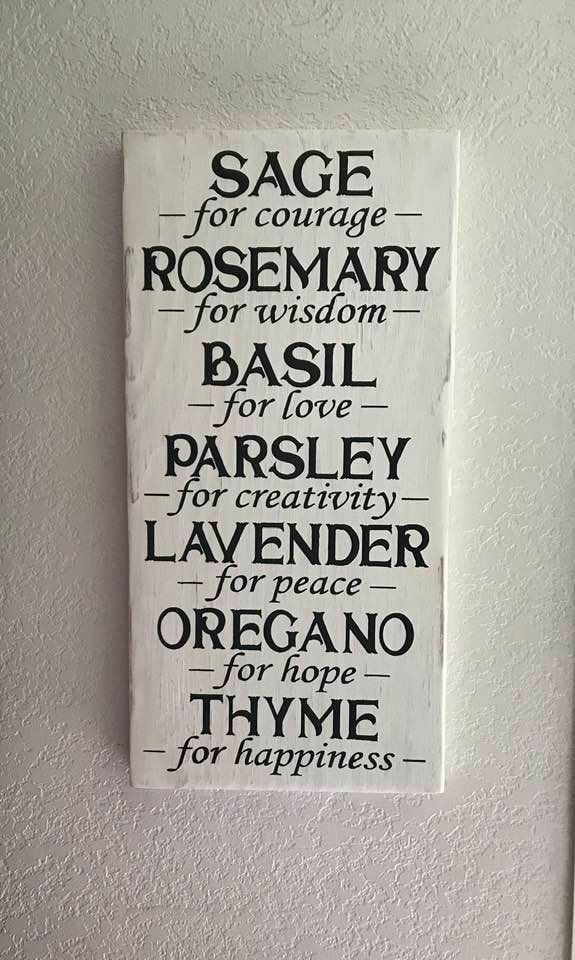 SAGE
– for courage –
ROSEMARY
– for wisdom –
BASIL
– for love –
PARSLEY
– for creativity –
LAVENDER
– for peace –
OREGANO
– for hope –
THYME
– for happiness –